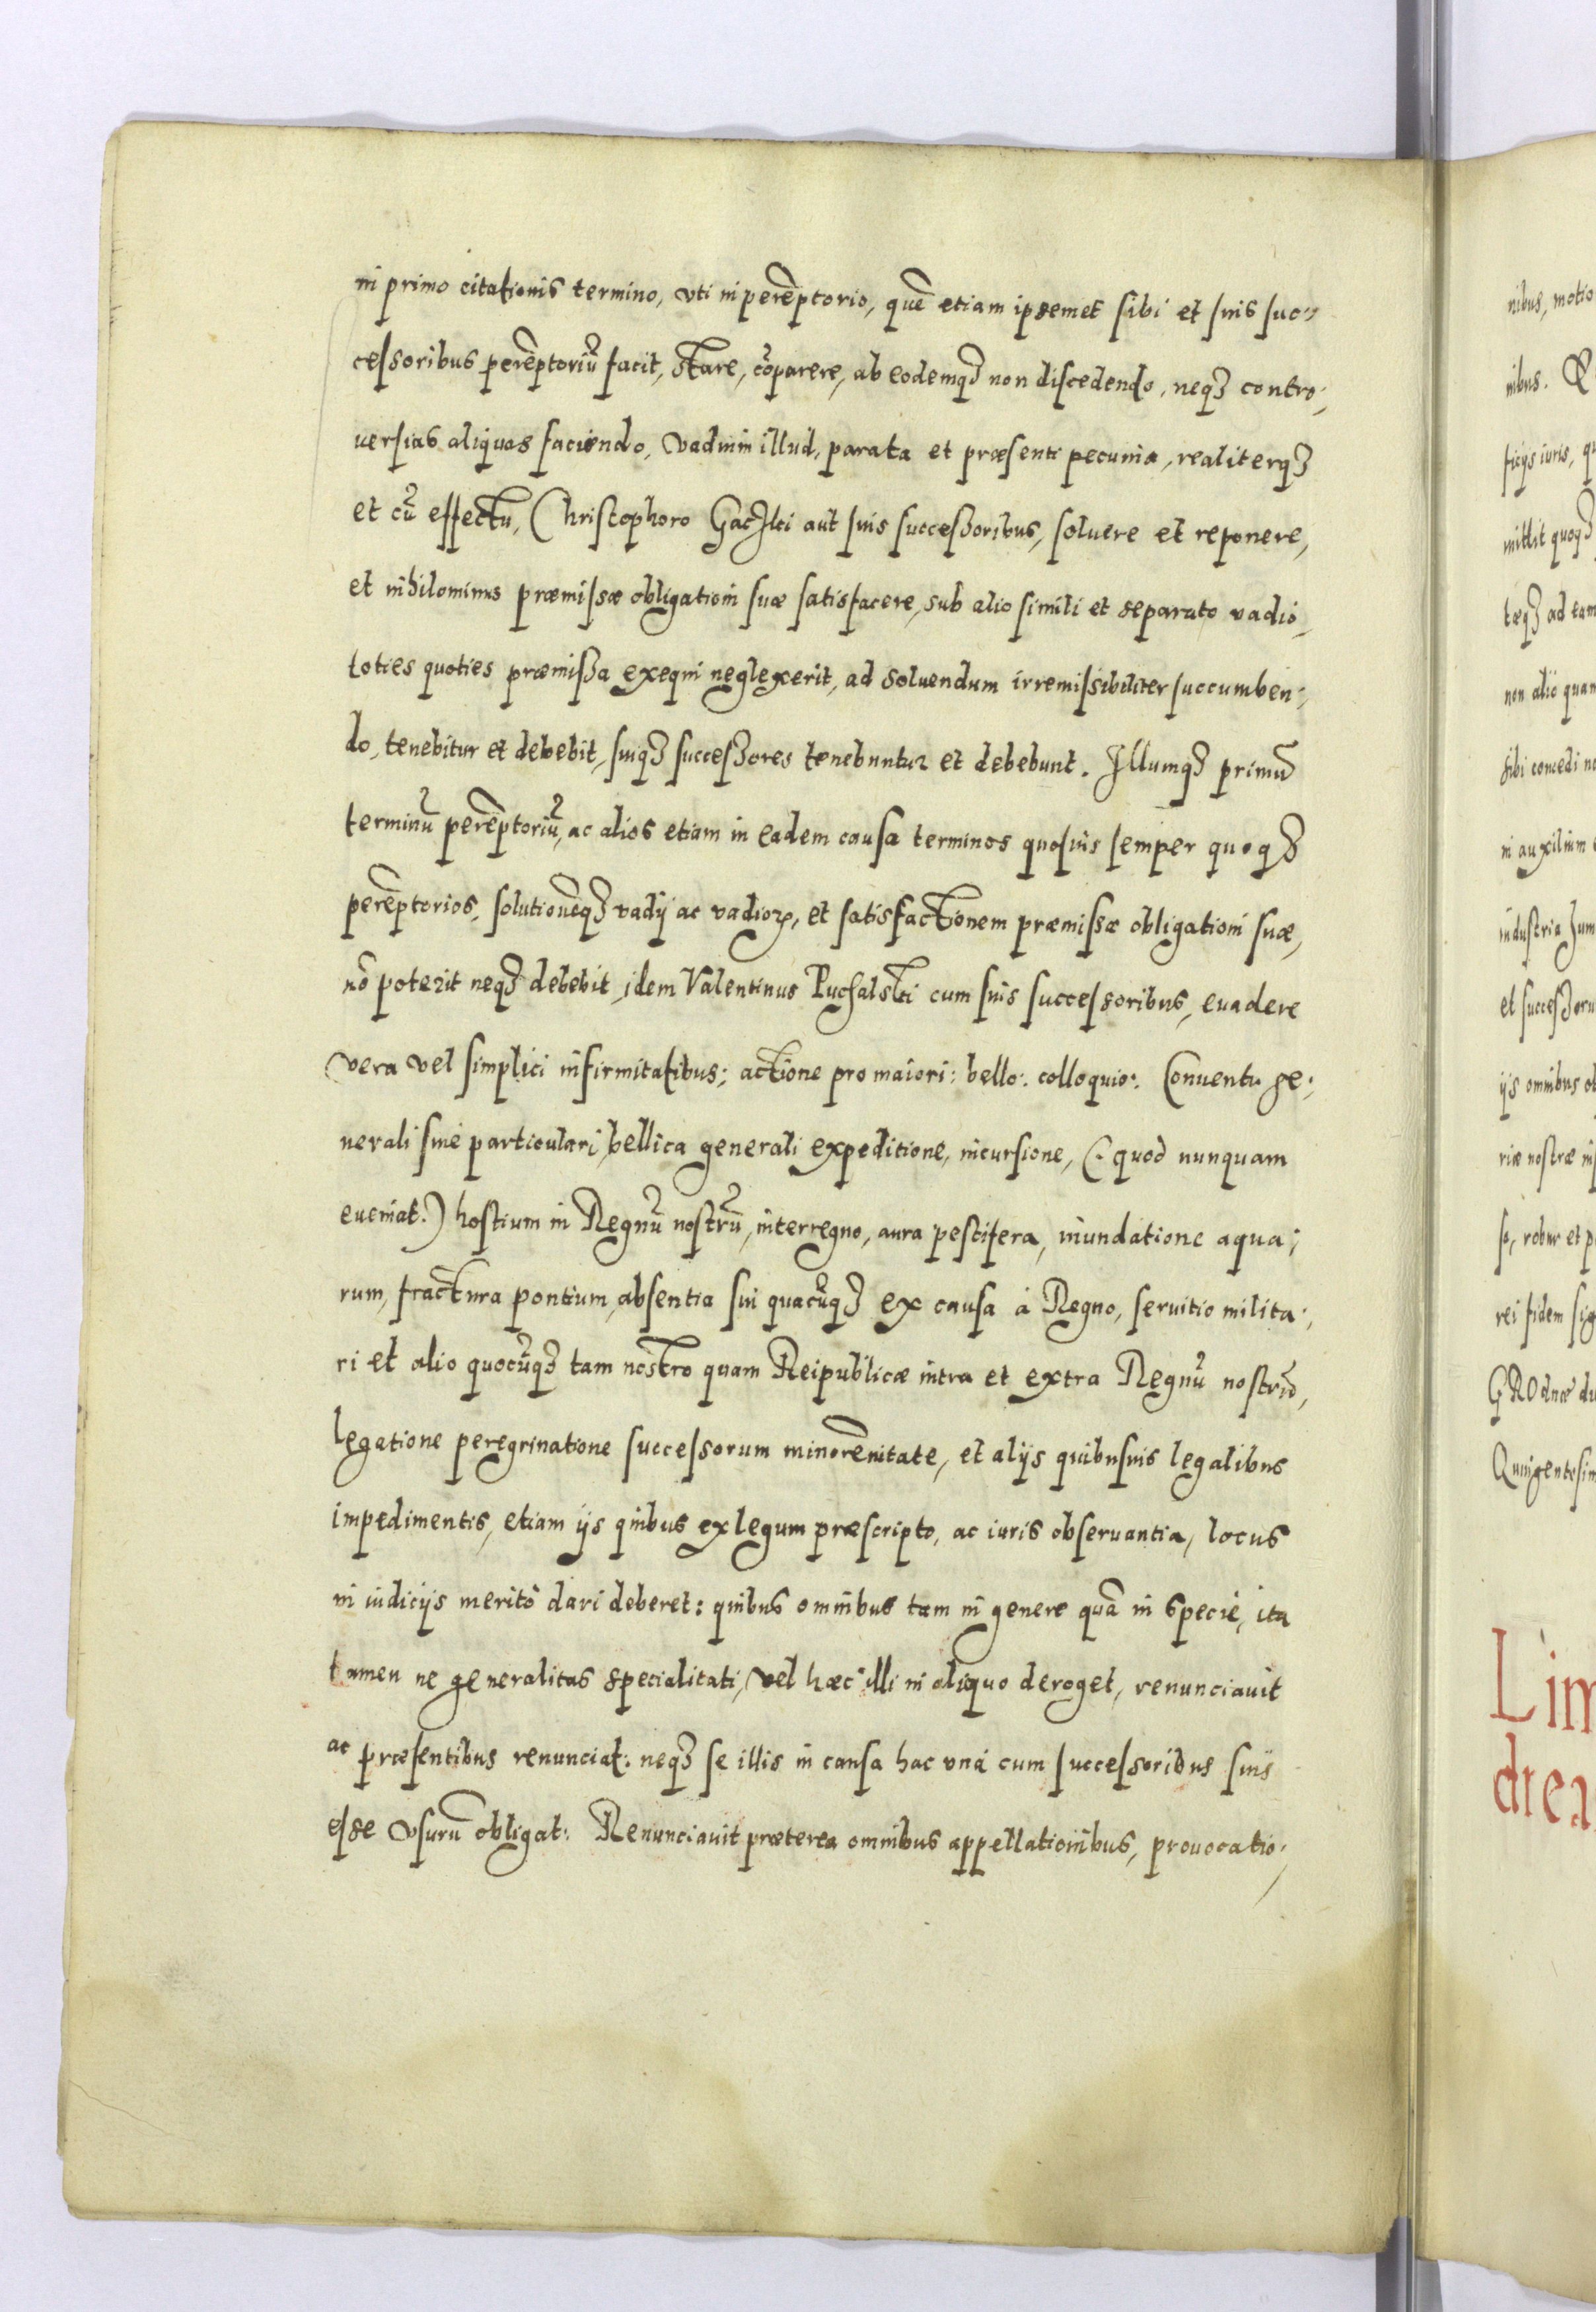 in primo citationis termino, vti in perẽptorio, quẽ etiam ipsemet sibi et suis suc:
cessoribus perẽptoriũ facit, stare, cõparere, ab eodemqꝫ non discedendo, neqꝫ contro:
uersias aliquas faciendo, vadium illud, parata et præsenti pecunia, realiterqꝫ
et cũ effectu, Christophoro aut suis successoribus, soluere et reponere,
et nihilominus præmissæ obligationi suæ satisfacere, sub alio simili et separato vadio,
toties quoties præmissa exequi neglexerit, ad soluendum irremissibiliter succumben:
do, tenebitur et debebit, suiqꝫ successores tenebuntur et debebunt. Illumqꝫ primũ
terminũ perẽptoriũ, ac alios etiam in eadem causa terminos quosuis semper quoqꝫ
perẽptorios, solutionẽqꝫ vadij ac vadioꝝ, et satisfactionem præmissæ obligationi suæ,
nõ poterit neqꝫ debebit, idem Valentinus Puchalski cum suis successoribus, euadere
vera vel simplici infirmitatibus; actione pro maiori: bello: colloquio: Conuentu ge:
nerali siue particulari, bellica generali expeditione, incursione, (: quod nunquam
eueniat.) hostium in Regnũ nostrũ, interregno, aura pestifera, inundatione aqua:
rum, fractura pontium, absentia sui quacũqꝫ ex causa à Regno, seruitio milita:
ri et alio quocũqꝫ tam nostro quam Reipublicæ intra et extra Regnũ nostrũ,
legatione peregrinatione successorum minorẽnitate, et alijs quibusuis legalibus
impedimentis, etiam ijs quibus ex legum præscripto, ac iuris obseruantia, locus
in iudicijs meritò dari deberet: quibus omnibus tam in genere quã in specie, ita
tamen ne generalitas specialitati, vel hæc illi in aliquo deroget, renunciauit
ac præsentibus renunciat: neqꝫ se illis in causa hac vnà cum successoribus suis
esse vsurũ obligat: Renunciauit præterea omnibus appellationibus, prouocatio:
nibus, motio
nibus.
ficijs iuris,
mittit quoqꝫ
tæqꝫ ad eam
non alio quam
sibi concedi
in auxilium
industria
et
ijs omnibus
riæ nostræ
robur et
rei fidem
GROdnæ
Lim
drea